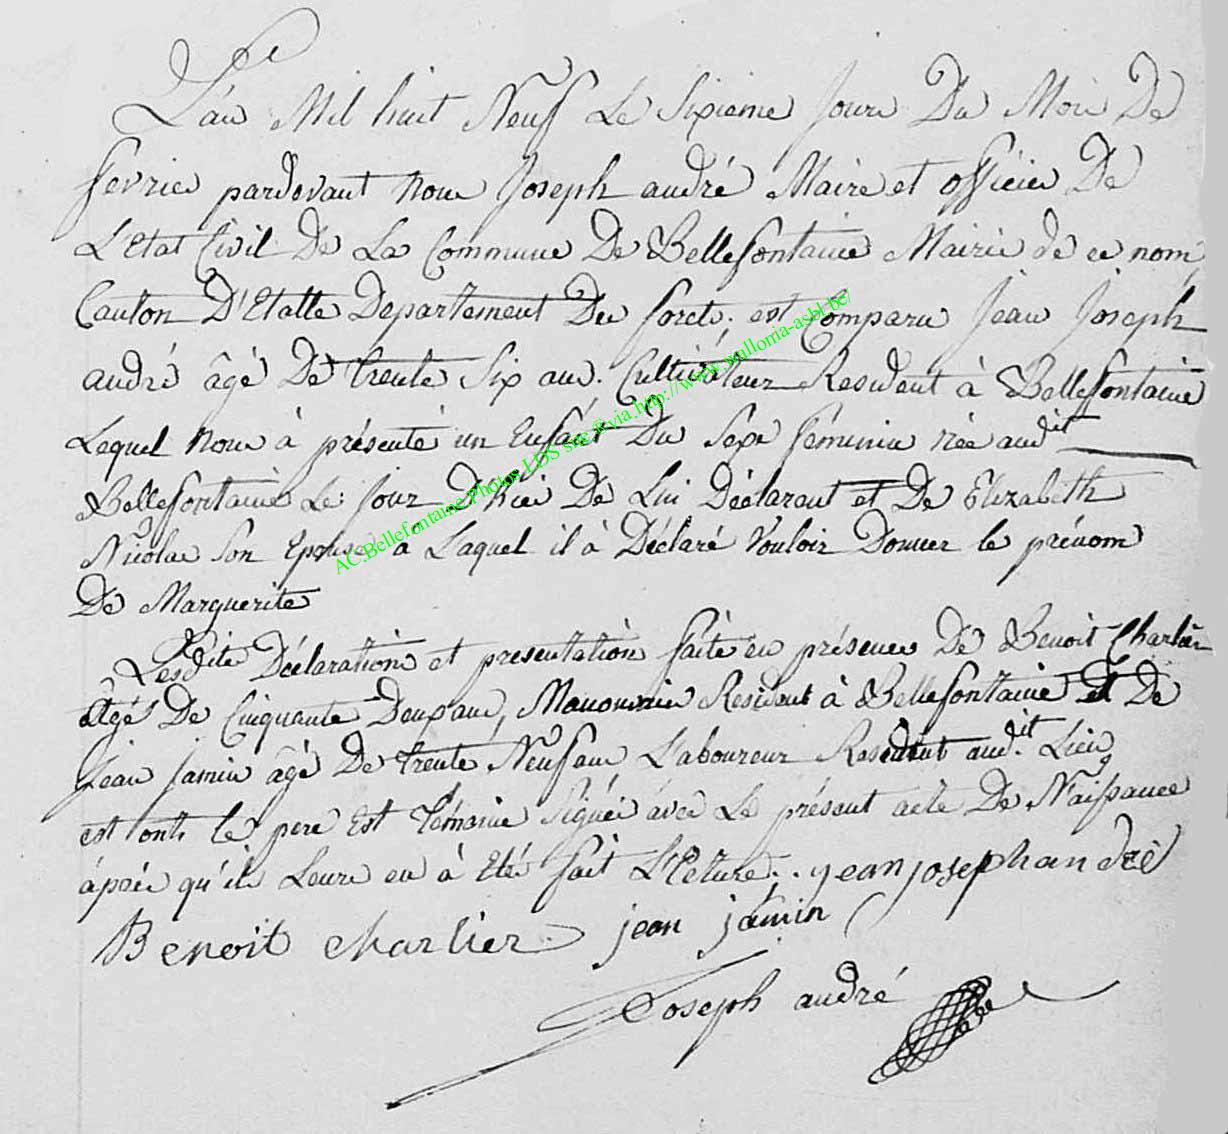 L'an Mil huit Neuf Le Sixieme Jour Du Mois De
fevrier pardevant nous Joseph andré Maire et officier De
L'Etat Civil De La Commune De Bellefontaine Mairie de ce nom
Canton D'Etalle Departement Des forets; est Comparu Jean Joseph
andré âgé De trente Six ans. Cultivateur Resident à Bellefontaine
Lequel Nous à présenté un Enfant Du Sexe féminin née audit
Bellefontaine Le: Jour D'hier De Lui Déclarant et De Elizabeth
Nicolas Son Epouse à Laquel il à Déclaré Vouloir Donner le prénom
De Marguerite
Lesdite Déclaration et presentation faite en présence De Benoit Charlier
âgé De Cinquante Deux ans, Manouvrie Resident à Bellefontaine et De
Jean Jamin âgé De trente Neuf ans L'aboureur Resident audit Lieu,
est onts le pere Est Témoins Signés avec Le présent acte De Naissance
áprés qu'ils Leurs en à Eté fait L'Ecture. . jean joseph andré
Benoit charlier jean jamin
Joseph andré
AC.Bellefontaine Photos LDS snc @via.http://www.wallonia-asbl.be/